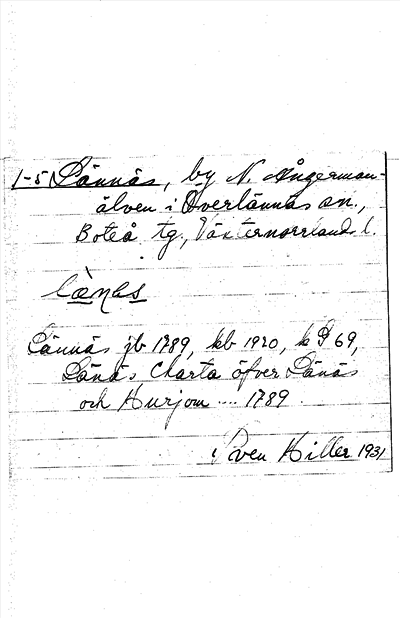 1-5 Lännäs, by N. Ångerman-
älven i Överlännäs sn.,
Boteå tg., Västernorrlands l.
Lännäs jb 1789, kb 1920, k 69,
Länäs, Charta öfver Länäs
och Hurjom .... 1789.
Sven Hiller 1931